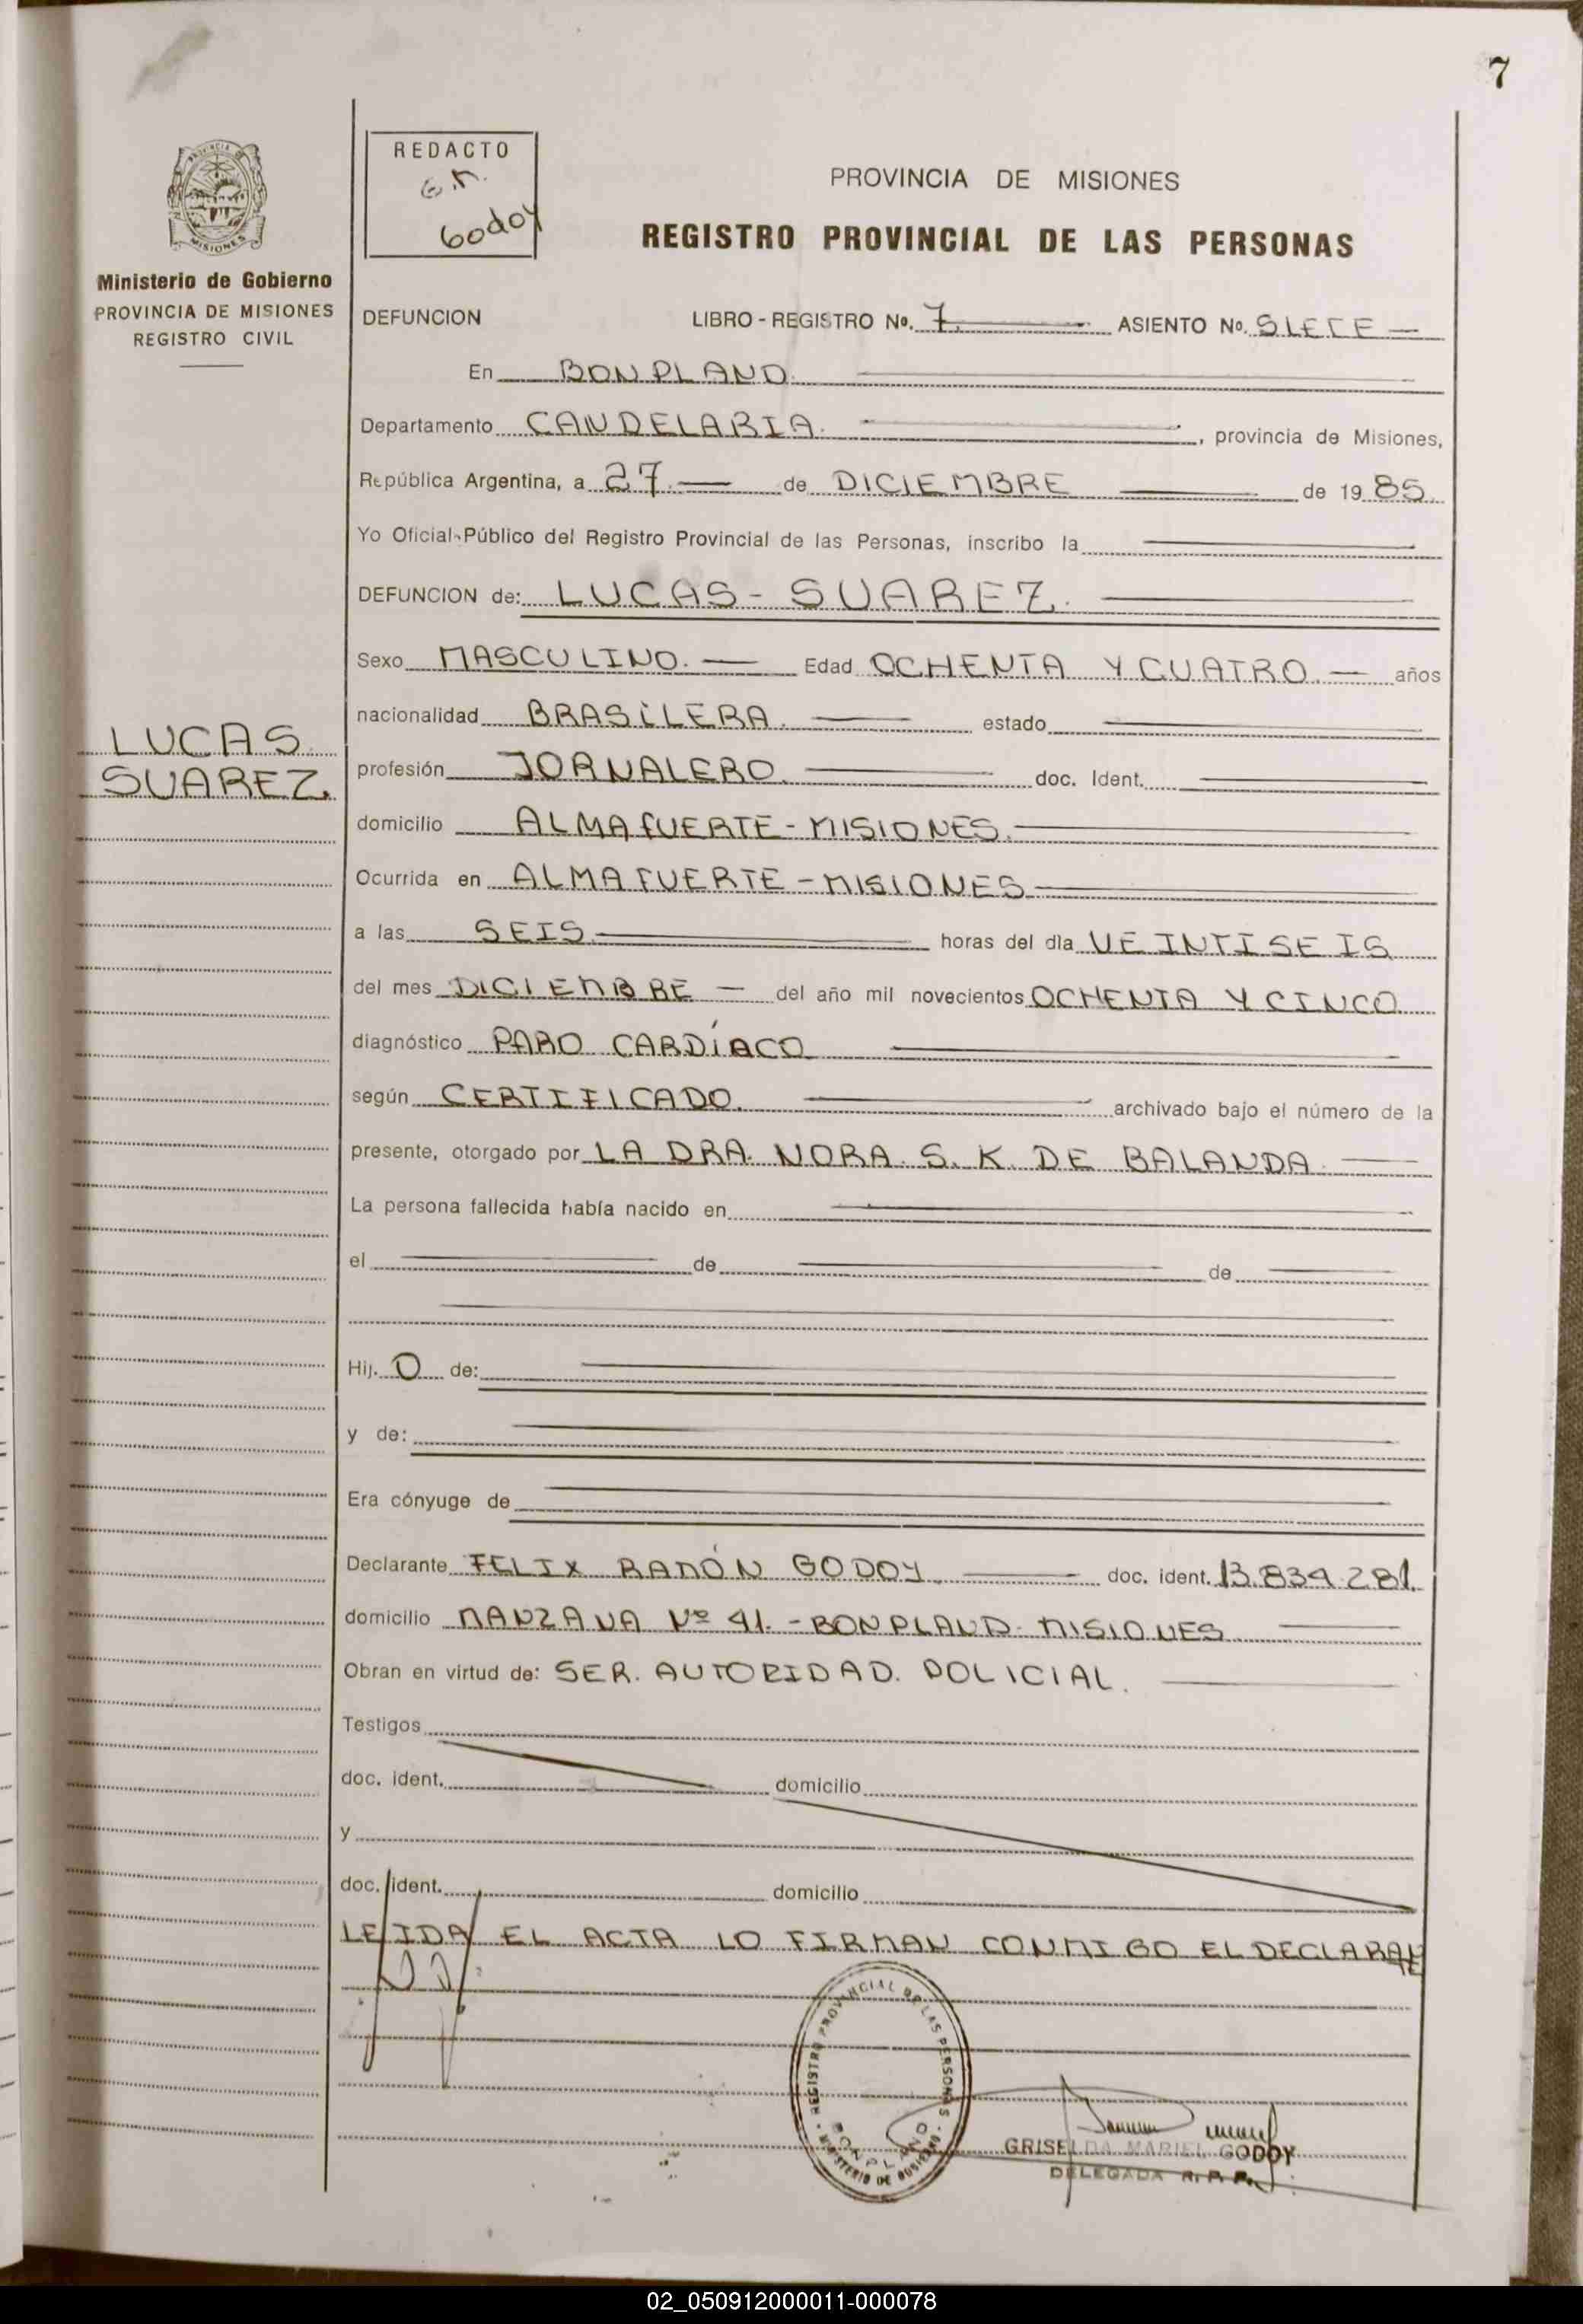 7
REDACTO
G.M.
Godoy
PROVINCIA DE MISIONES
REGISTRO PROVINCIAL DE LAS PERSONAS
PROVINCIA DE MISIONES
Ministerio de Gobierno
PROVINCIA DE MISIONES
REGISTRO CIVIL
LUCAS
SUAREZ.
DEFUNCION LIBRO - REGISTRO No. 7. ASIENTO No. SIETE
En BONPLAND.
Departamento CANDELARIA. , provincia de Misiones,
República Argentina, a 27. de DICIEMBRE de 19 85.
Yo Oficial Público del Registro Provincial de las Personas, inscribo la
DEFUNCION de: LUCAS - SUAREZ.
Sexo MASCULINO. Edad OCHENTA Y CUATRO. años
nacionalidad BRASILERA. estado
profesión JORNALERO. doc. Ident.
domicilio ALMAFUERTE - MISIONES.
Ocurrida en ALMAFUERTE - MISIONES
a las SEIS. horas del día VEINTISEIS
del mes DICIEMBRE - del año mil novecientos OCHENTA Y CINCO
diagnóstico PARO CARDÍACO
según CERTIFICADO. archivado bajo el número de la
presente, otorgado por LA DRA. NORA. S. K. DE BALANDA.
La persona fallecida había nacido en
el de de
Hij. O de:
y de:
Era cónyuge de
Declarante FELIX RAMÓN GODOY. doc. ident. 13.834.281.
domicilio MANZANA Nº 41. - BONPLAND. MISIONES
Obran en virtud de: SER. AUTORIDAD. POLICIAL.
Testigos
doc. ident. domicilio
y
doc. ident. domicilio
LEIDA EL ACTA LO FIRMAN CONMIGO EL DECLARAN
TE
REGISTRO PROVINCIAL DE LAS PERSONAS
BONPLAND
MINISTERIO DE GOBIERNO
GRISELDA MARIEL GODOY
DELEGADA R. P. P.
02_050912000011-000078